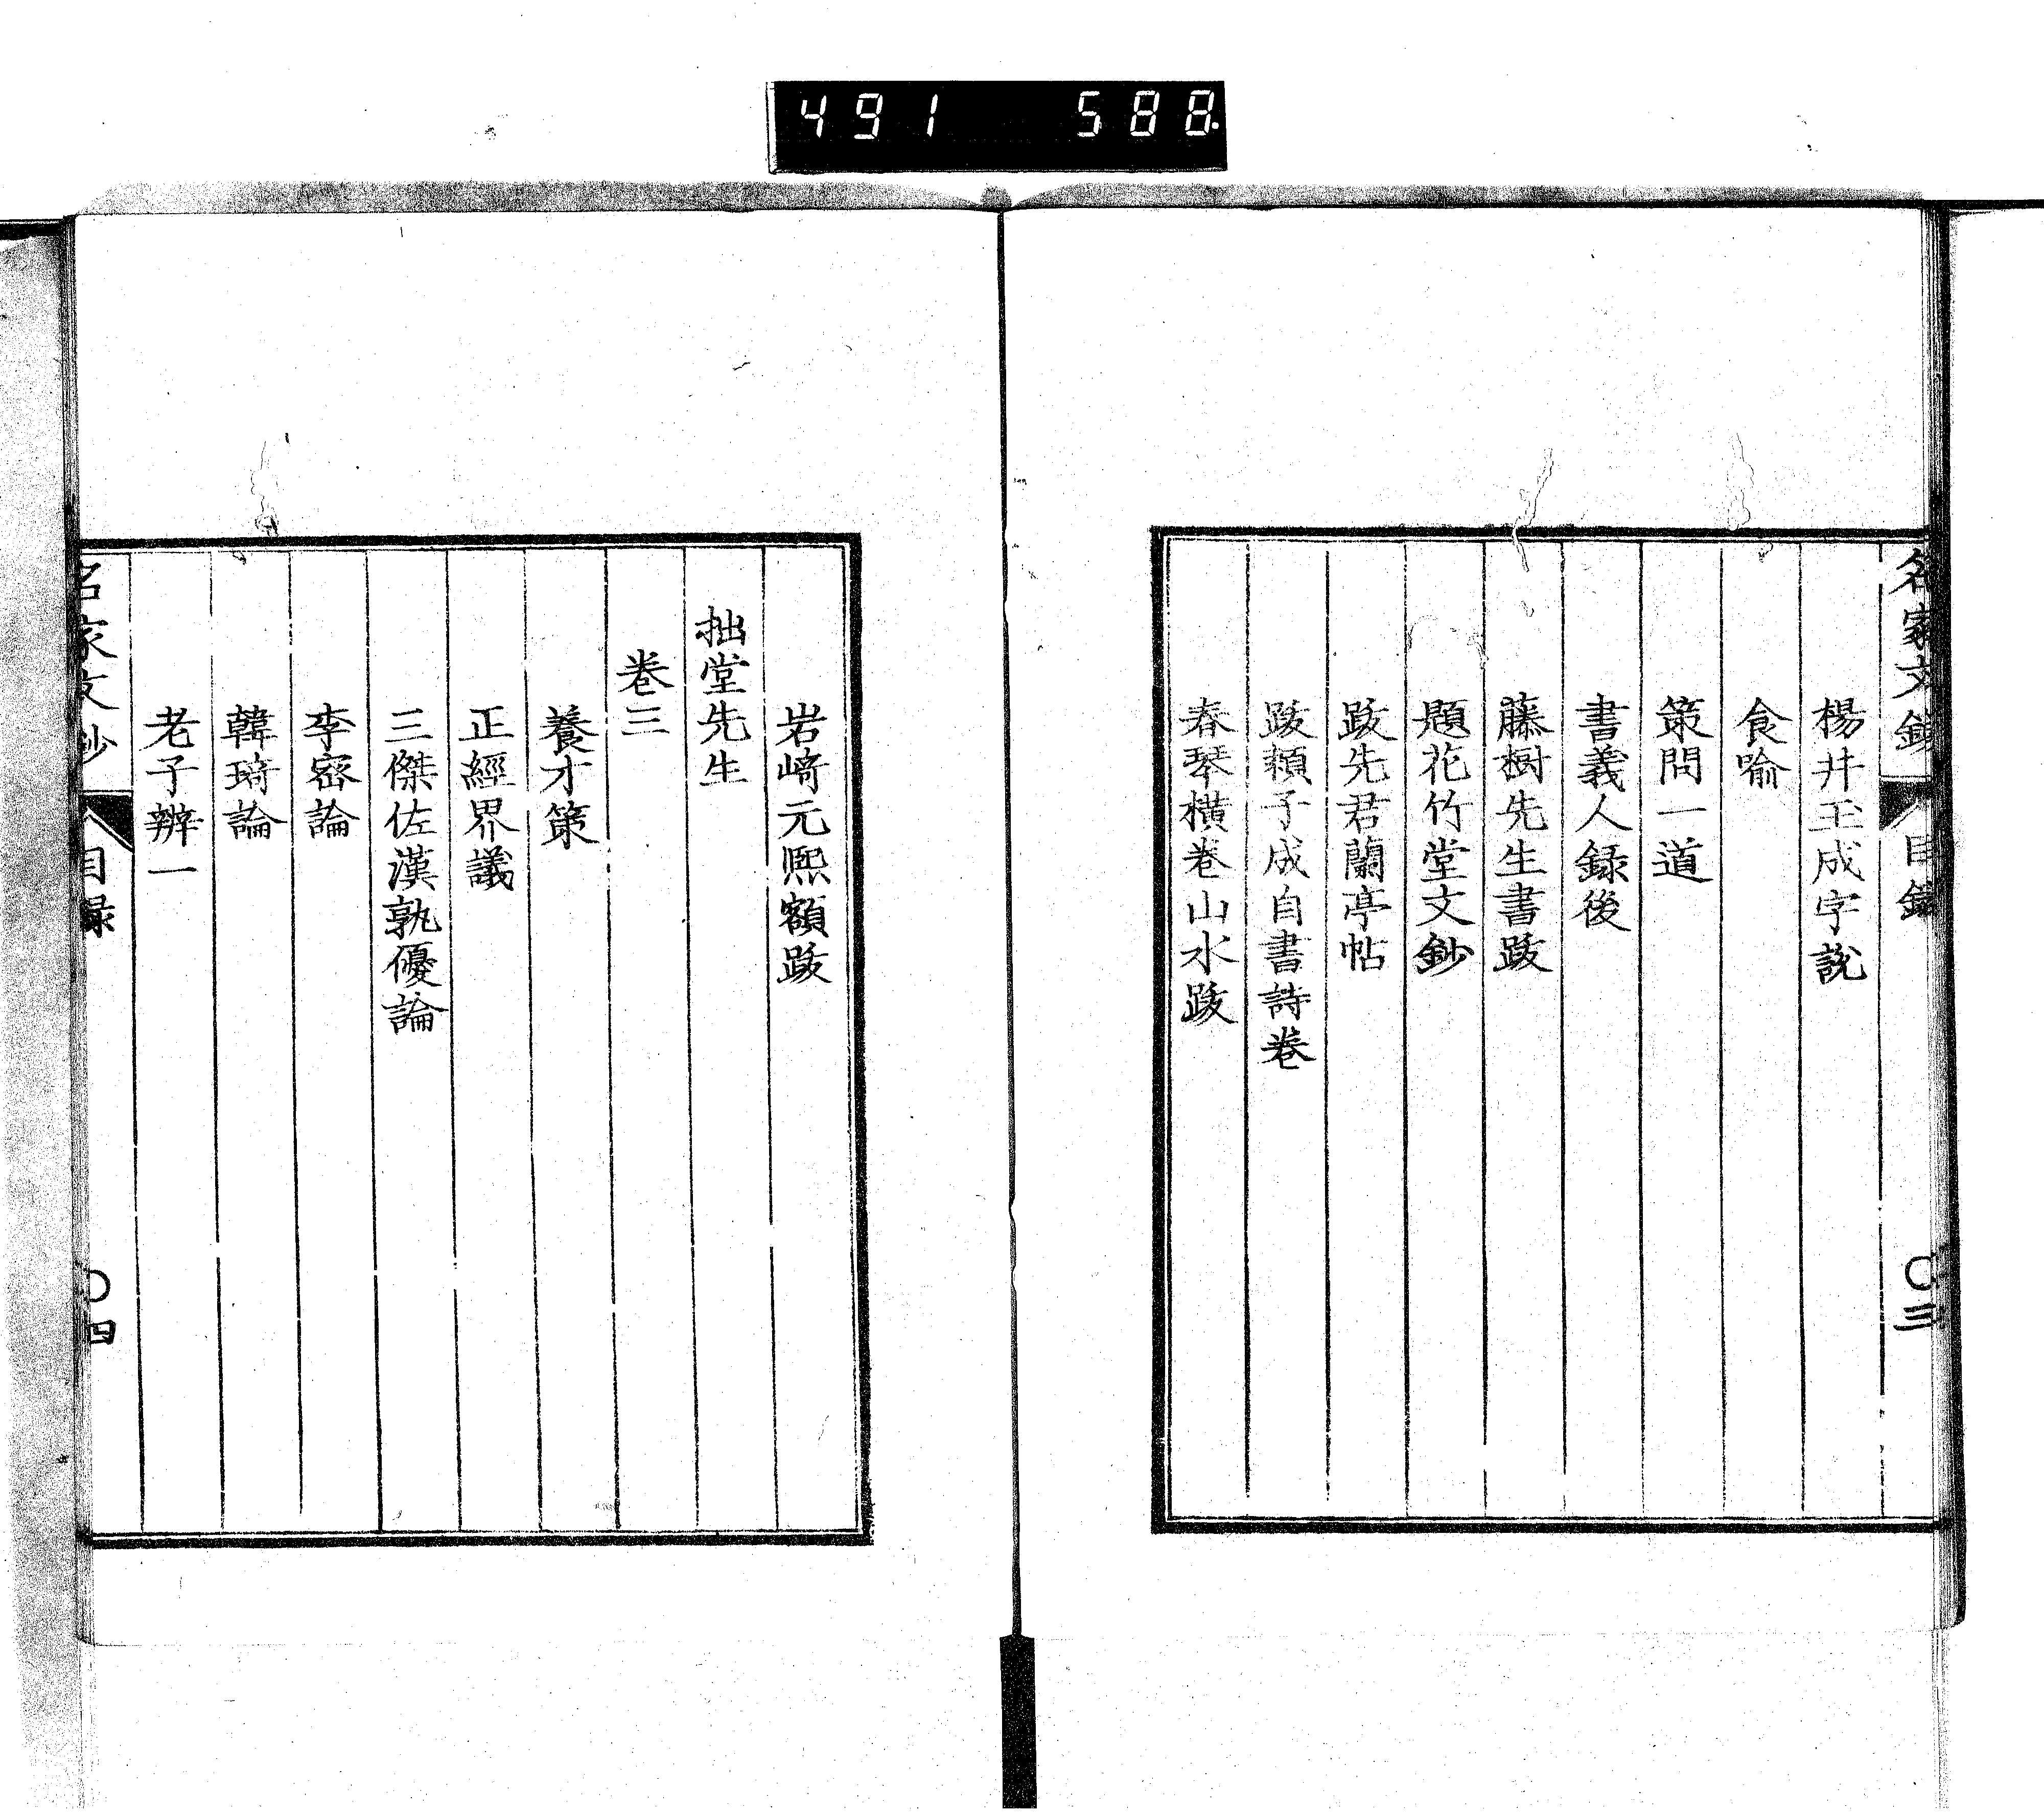 491 588
名家文鈔 目録 〇三
楊井玉成字說
食喻
策問一道
書義人録後
藤樹先生書跋
題花竹堂文鈔
跋先君蘭亭帖
跋頼子成自書詩卷
春琴橫卷山水跋
岩﨑元熙額跋
拙堂先生
卷三
養才策
正經界議
三傑佐漢孰優論
李密論
韓琦論
老子辨一
名家文鈔 目録 〇四